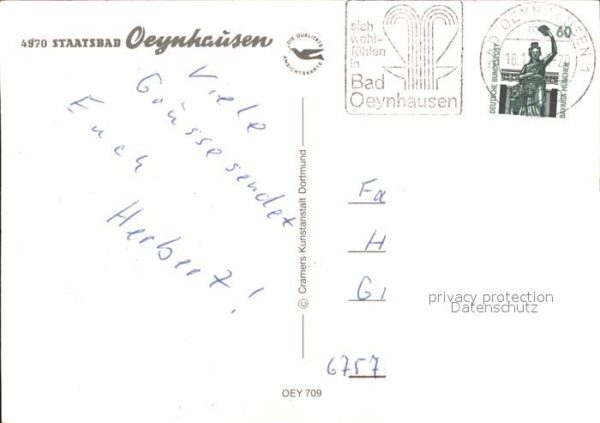 4970 STAATSBAD Oeynhausen
DIE QUALITÄTS
ANSICHTSKARTE
sich
wohl-
fühlen
in
Bad
Oeynhausen
BAD OEYNHAUSEN 1
60
DEUTSCHE BUNDESPOST
BAVARIA MÜNCHEN
Viele
Grüsse sendet
Euch
Herbert!
© Cramers Kunstanstalt Dortmund
Fa
H
Gi
6757
privacy protection
Datenschutz
OEY 709